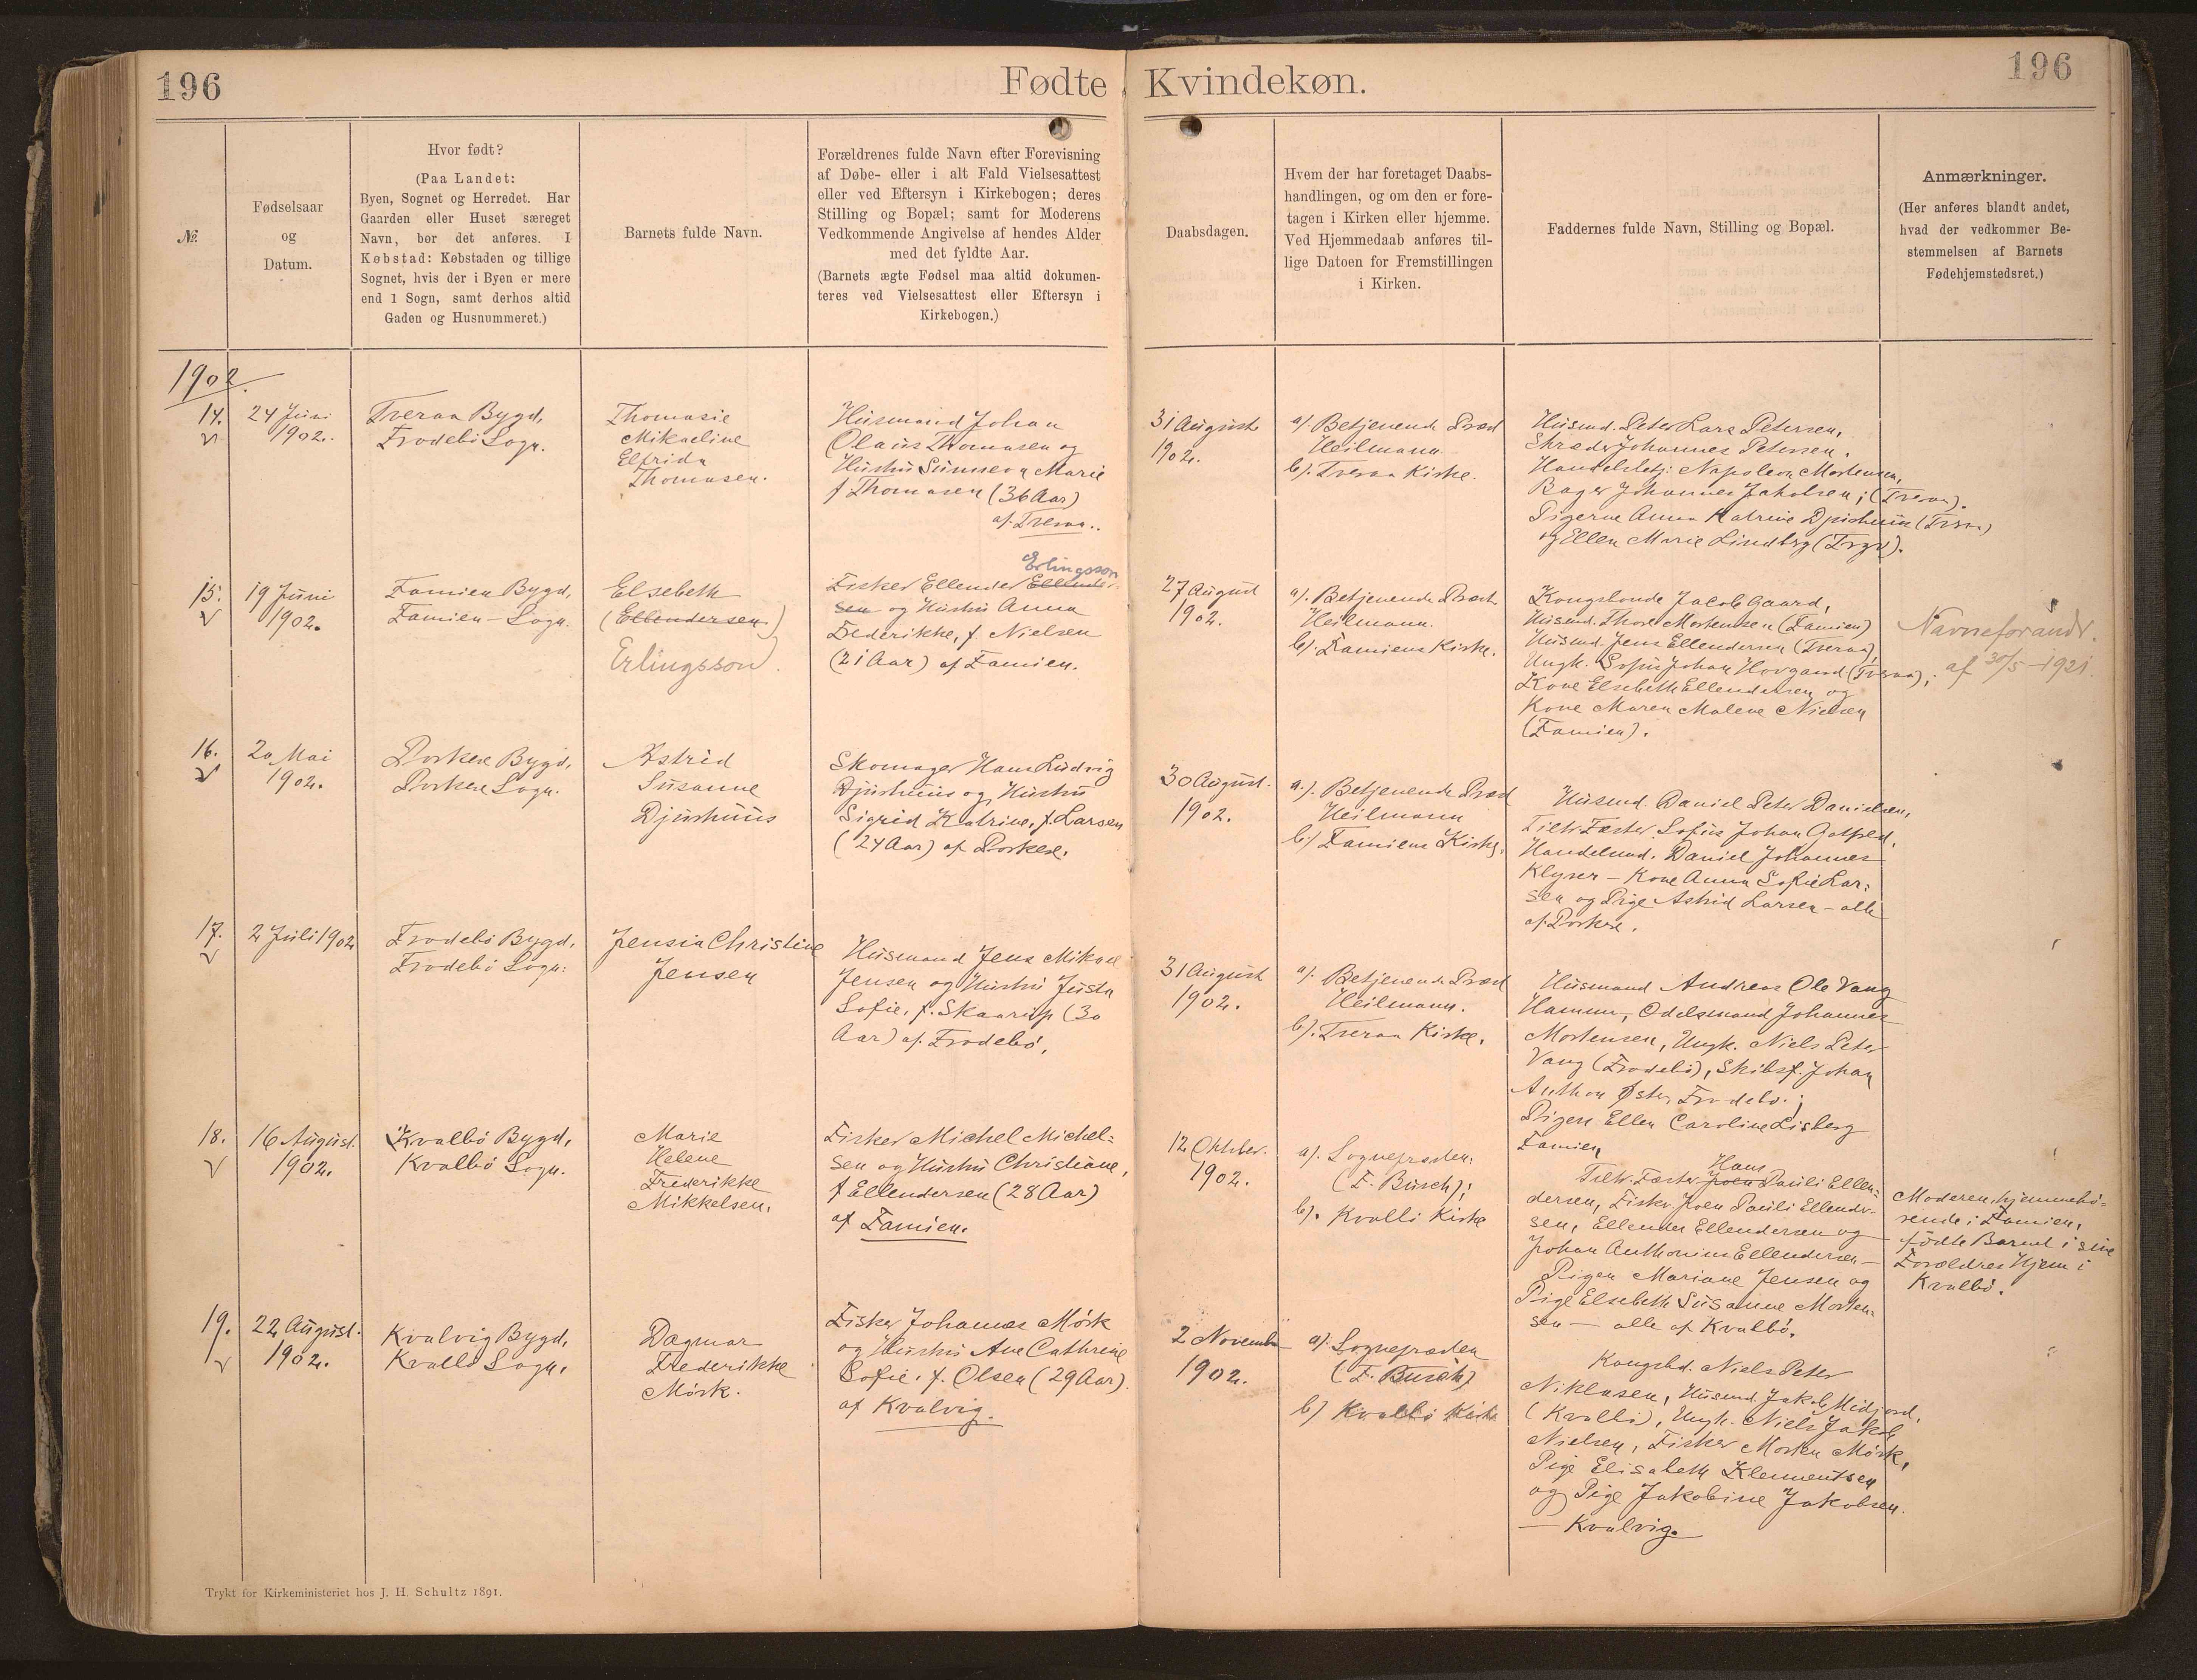 196
Fødte Kvindekøn.
196
№
Fødselsaar
og
Datum.
Hvor født?
(Paa Landet:
Byen, Sognet og Herredet. Har
Gaarden eller Huset særeget
Navn, bør det anføres. I
Købstad: Købstaden og tillige
Sognet, hvis der i Byen er mere
end 1 Sogn, samt derhos altid
Gaden og Husnummeret.)
Barnets fulde Navn.
Forældrenes fulde Navn efter Forevisning
af Døbe- eller i alt Fald Vielsesattest
eller ved Eftersyn i Kirkebogen; deres
Stilling og Bopæl; samt for Moderens
Vedkommende Angivelse af hendes Alder
med det fyldte Aar.
(Barnets ægte Fødsel maa altid dokumen-
teres ved Vielsesattest eller Eftersyn i
Kirkebogen.)
Daabsdagen.
Hvem der har foretaget Daabs-
handlingen, og om den er fore-
tagen i Kirken eller hjemme.
Ved Hjemmedaab anføres til-
lige Datoen for Fremstillingen
i Kirken.
Faddernes fulde Navn, Stilling og Bopæl.
Anmærkninger.
(Her anføres blandt andet,
hvad der vedkommer Be-
stemmelsen af Barnets
Fødehjemstedsret.)
1902.
14.
24 Juni
1902.
Tveraa Bygd,
Frodebö Sogn.
Thomasie
Mikaeline
Elfrida
Thomasen.
Husmand Johan
Olaus Thomasen og
Hustru Sunneva Marie
f Thomasen (36 Aar)
af Tveraa.
31 August
1902.
a). Betjenende Præst
Heilmann
b). Tveraa Kirke.
Husmd. Peter Lars Petersen,
Skræder Johannes Petersen,
Handelsbetj: Napoleon Mortensen,
Bager Johannes Jakobsen; (Tveraa).
Pigerne Anna Katrine Djurhuus (Tveraa)
og Ellen Marie Lindberg (Trgv).
15.
19 Juni
1902.
Famien Bygd,
Famien-Sogn.
Elsebeth
(Ellendersen)
Erlingsson.
Erlingsson
Fisker Ellender Ellender-
sen og Hustru Anna
Frederikke, f. Nielsen
(21 Aar) af Famien.
27 August
1902.
a). Betjenende Præst
Heilmann.
b). Famiens Kirke.
Kongsbonde Jacob Gaard,
Husmd. Thore Mortensen (Famien)
Husmd. Jens Ellendersen (Tveraa),
Ungk. Sofus Johan Hovgaard (Tveraa),
Kone Elsebeth Ellendersen og
Kone Maren Malene Nielsen
(Famien).
Navneforandr.
af 30/5-1921.
16.
20 Mai
1902.
Porkere Bygd,
Porkere Sogn.
Astrid
Susanne
Djurhuus
Skomager Hans Ludvig
Djurhuus og Hustru
Sigrid Katrine, f. Larsen
(24 Aar) af Porkere.
30 August.
1902.
a.). Betjenende Præst
Heilmann
b) Famiens Kirke.
Husmd. Daniel Peter Danielsen,
Tilh. Fæster Sofus Johan Gotfred,
Handelsmd. Daniel Johannes
Klyver - Kone Anna Sofie Lar-
sen og Pige Astrid Larsen - alle
af Porkere.
17.
2 Juli 1902
Frodebö Bygd,
Frodebö Sogn:
Jensia Christine
Jensen
Husmand Jens Mikael
Jensen og Hustru Justa
Sofie, f. Skaarup (30
Aar) af Frodebö,
31 August
1902.
a). Betjenende Præst
Heilmann.
b). Tveraa Kirke.
Husmand Andreas Ole Vang
Hammer, Odelsmand Johannes
Mortensen, Ungk. Niels Peter
Vang (Frodebö), Skibsf. Johan
Anthon Øster, Frodebö.;
Pigen Ellen Caroline Lisberg
Famien,
18.
16 August.
1902.
Kvalbö Bygd,
Kvalbö Sogn.
Marie
Helene
Frederikke
Mikkelsen.
Fisker Michel Michel-
sen og Hustru Christiane,
f Ellendersen (28 Aar)
af Famien.
12 Oktober.
1902.
a). Sognepræsten:
(F. Busch);
b). Kvalbö Kirke
Hans
Tilh. Fæster Joen Pauli Ellen-
dersen, Fisker Joen Pauli Ellender-
sen, Ellender Ellendersen og
Johan Anthonius Ellendersen -
Pigen Mariane Jensen og
Pige Elsebeth Susanne Morten-
sen - alle af Kvalbö.
Moderen, hjemmehö-
rende i Famien,
födte Barnet i sine
Forældres Hjem i
Kvalbö.
19.
22 August.
1902.
Kvalvig Bygd,
Kvalbö Sogn,
Dagmar
Frederikke
Mörk.
Fisker Johannes Mörk
og Hustru Ane Cathrine
Sofie, f. Olsen (29 Aar).
af Kvalvig.
2 November
1902.
a). Sognepræsten
(F. Busch)
b) Kvalbö Kirke
Kongsbd. Niels Peter
Niklasen, Husmd Jakob Midjord,
(Kvalbö), Ungk. Niels Jakob
Nielsen, Fisker Morten Mörk,
Pige Elisabeth Klementsen
og Pige Jakobine Jakobsen.
- Kvalvig.
Trykt for Kirkeministeriet hos J. H. Schultz 1891.